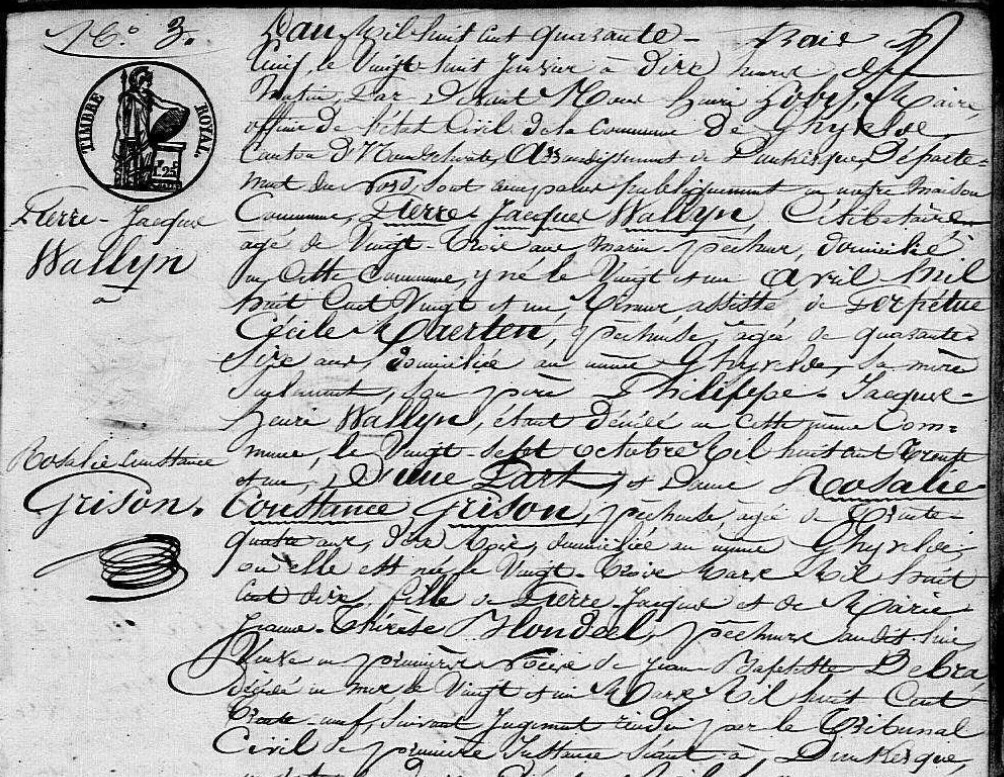 N.o 3.
TIMBRE ROYAL.
F. 25
Pierre-Jacques
Wallyn
à
Rosalie Constance
Grison.
L'an Mil huit cent quarante-trois
le Vingt huit Janvier à dix heures du
Matin, Par Devant Nous Henri, Maire,
officier de l'état Civil de la Commune De Ghyvelde,
Canton d'Hondschoote, Arrondissement de Dunkerque, Départe-
ment du Nord, sont comparus publiquement en notre maison
Commune, Pierre-Jacques Wallyn, Célibataire
âgé de Vingt-un ans marin-pêcheur, domicilié
en Cette Commune, y né le Vingt et un Avril Mil
huit Cent Vingt et un, Mineur, assisté de Perpétue
Cécile Maerten, pêcheuse, âgée de quarante
six ans, domiciliée au même Ghyvelde, sa mère
seulement, son père Philippe-Jacques-
Henri Wallyn, étant Décédé en Cette même Com-
mune, le Vingt-Sept octobre Mil huit cent Trente
et un, D'une Part, et Dame Rosalie
Constance Grison, pêcheuse, âgée de Trente-
quatre ans, dix Mois, domiciliée au même Ghyvelde,
où elle est née le Vingt-Trois Mars Mil huit
Cent dix, fille de Pierre-Jacques et de Marie
Jeanne-Thérèse Blondeel, pêcheurs audit lieu
Veuve en première Noces de Jean-Baptiste Debra,
Décédé en mer le Vingt et un Mars Mil huit Cent
Trente-neuf, Suivant Jugement rendu par le Tribunal
Civil de première Instance séant à Dunkerque,